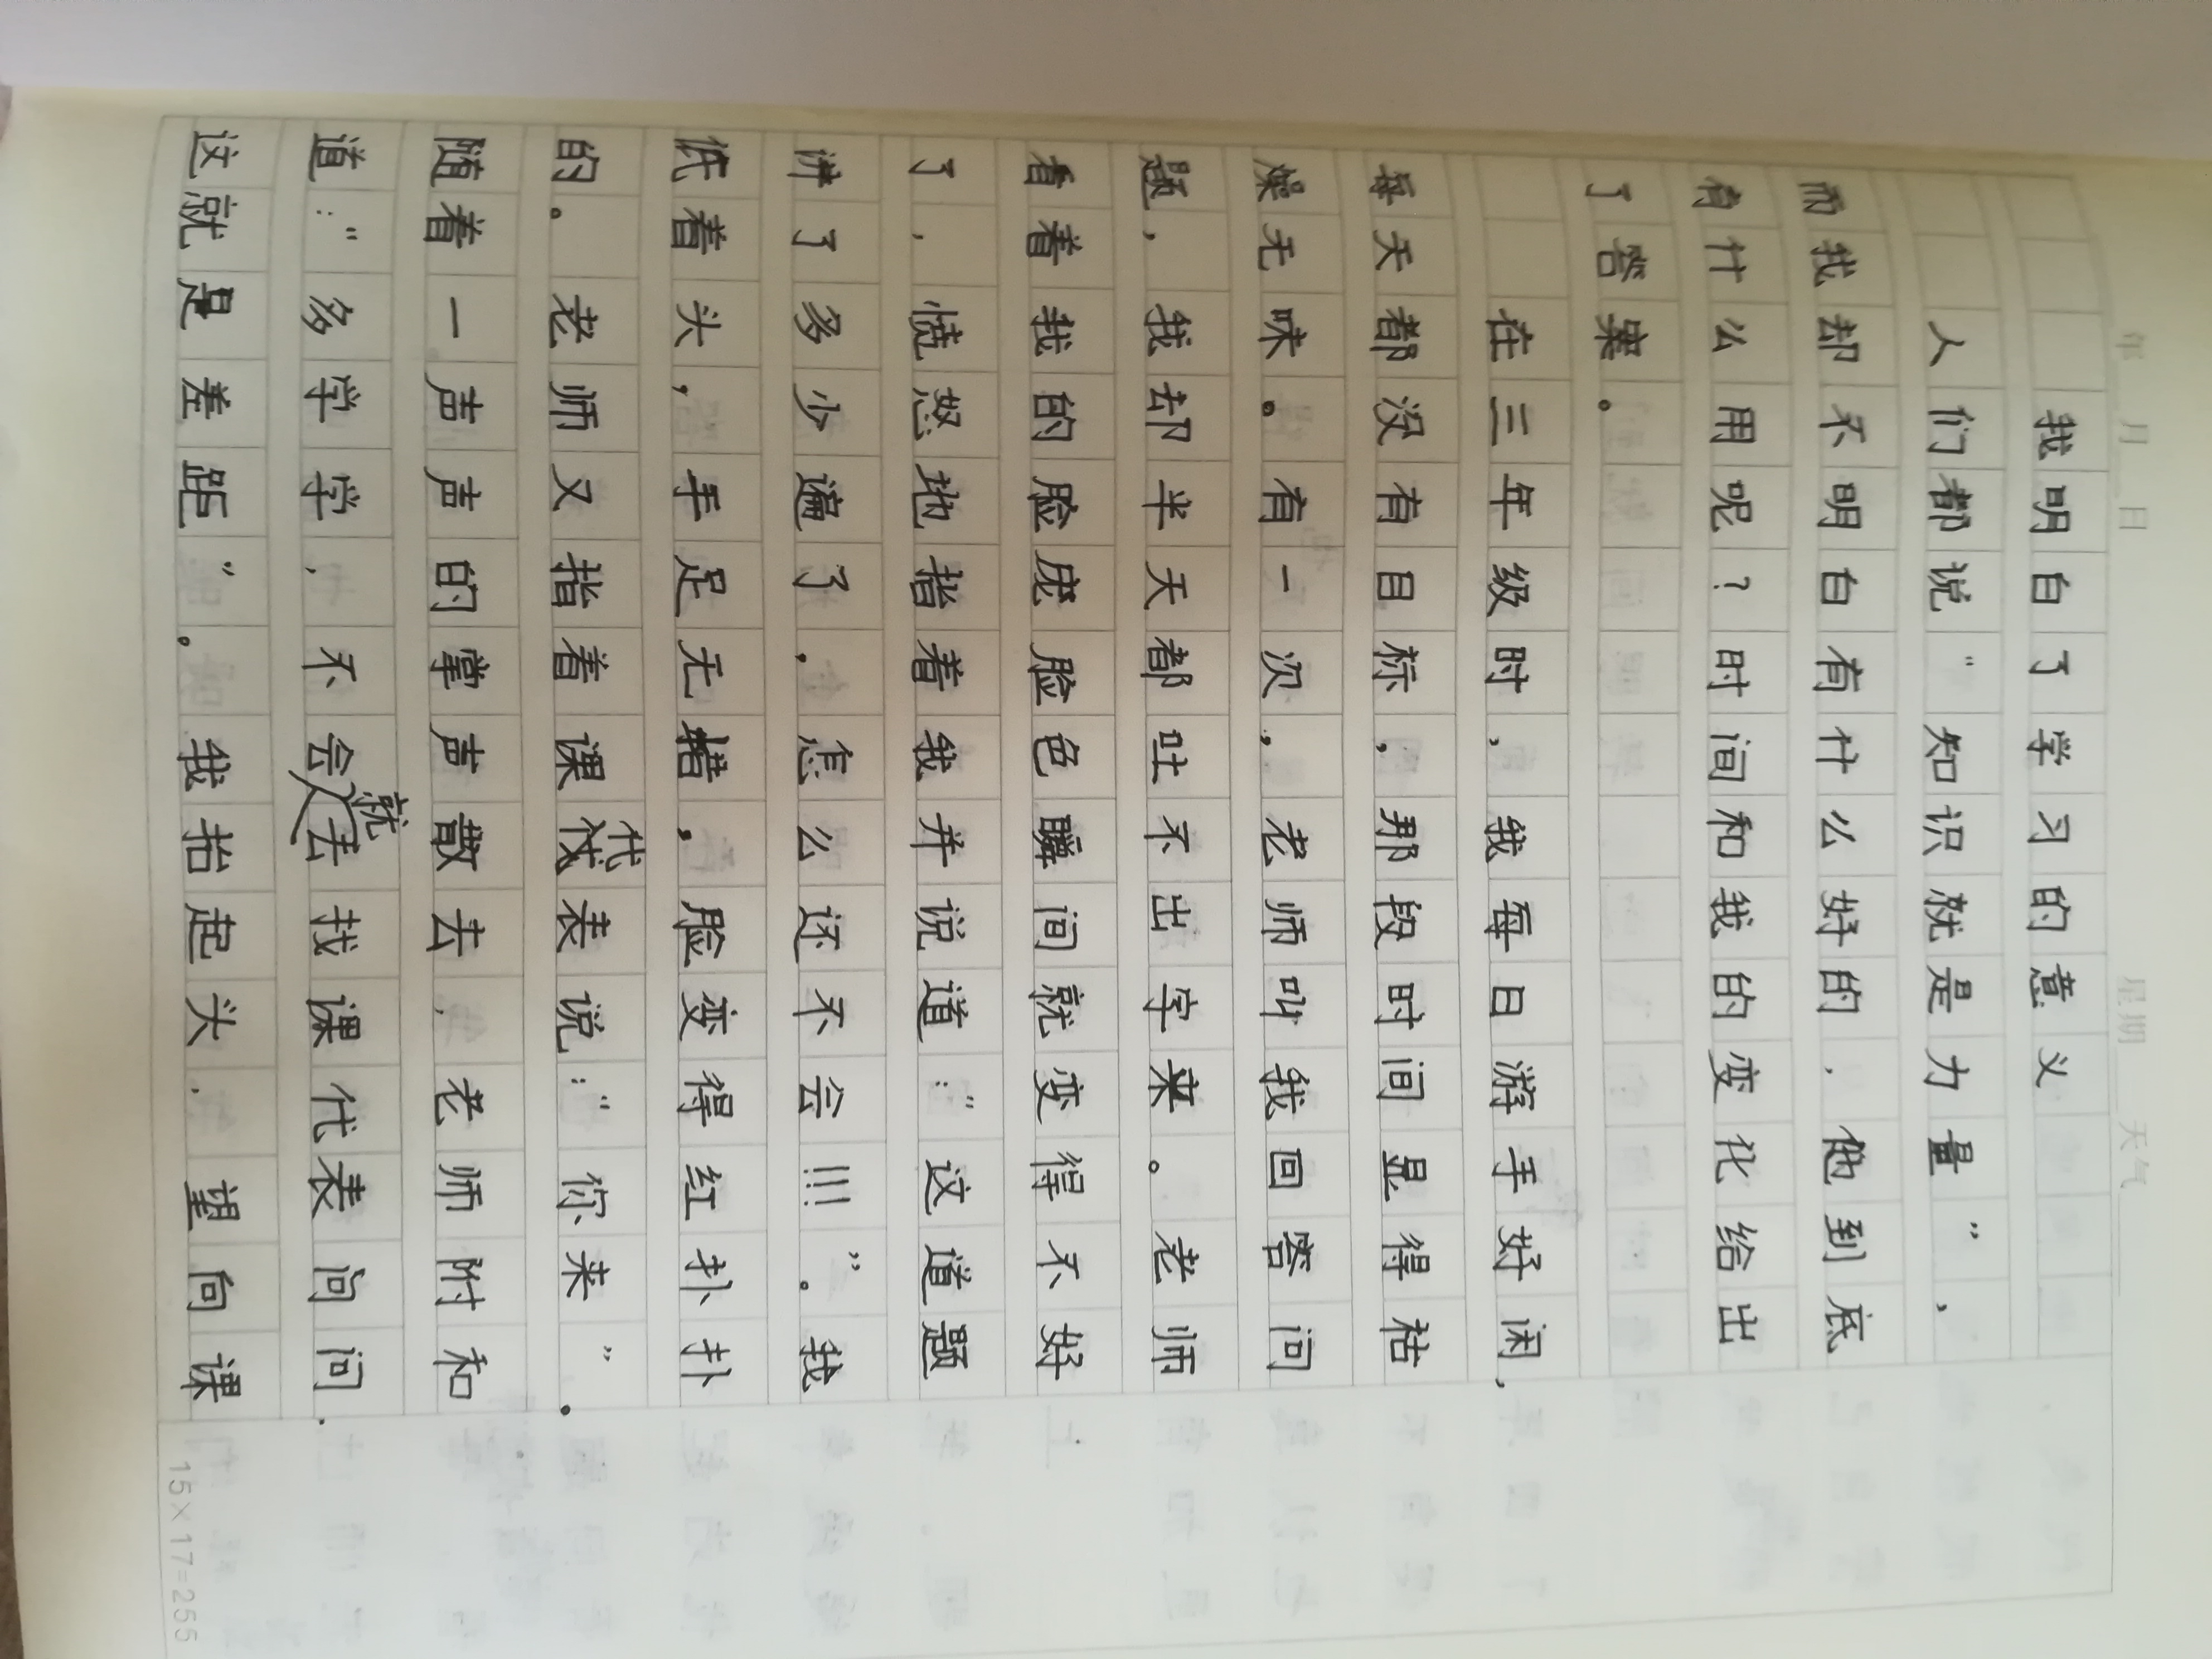 年 月 日 星期 天气
我明白了学习的意义
人们都说“知识就是力量”，
而我却不明白有什么好的，他到底
有什么用呢？时间和我的变化给出
了答案。
在三年级时，我每日游手好闲，
每天都没有目标，那段时间显得枯
燥无味。有一次，老师叫我回答问
题，我却半天都吐不出字来。老师
看着我的脸庞脸色瞬间就变得不好
了，愤怒地指着我并说道：“这道题
讲了多少遍了，怎么还不会!!!”。我
低着头，手足无措，脸变得红扑扑
的。老师又指着课代表说：“你来”。
随着一声声的掌声散去，老师附和
道：“多学学，不会就去找课代表问问，
这就是差距”。我抬起头，望向课
15×17=255